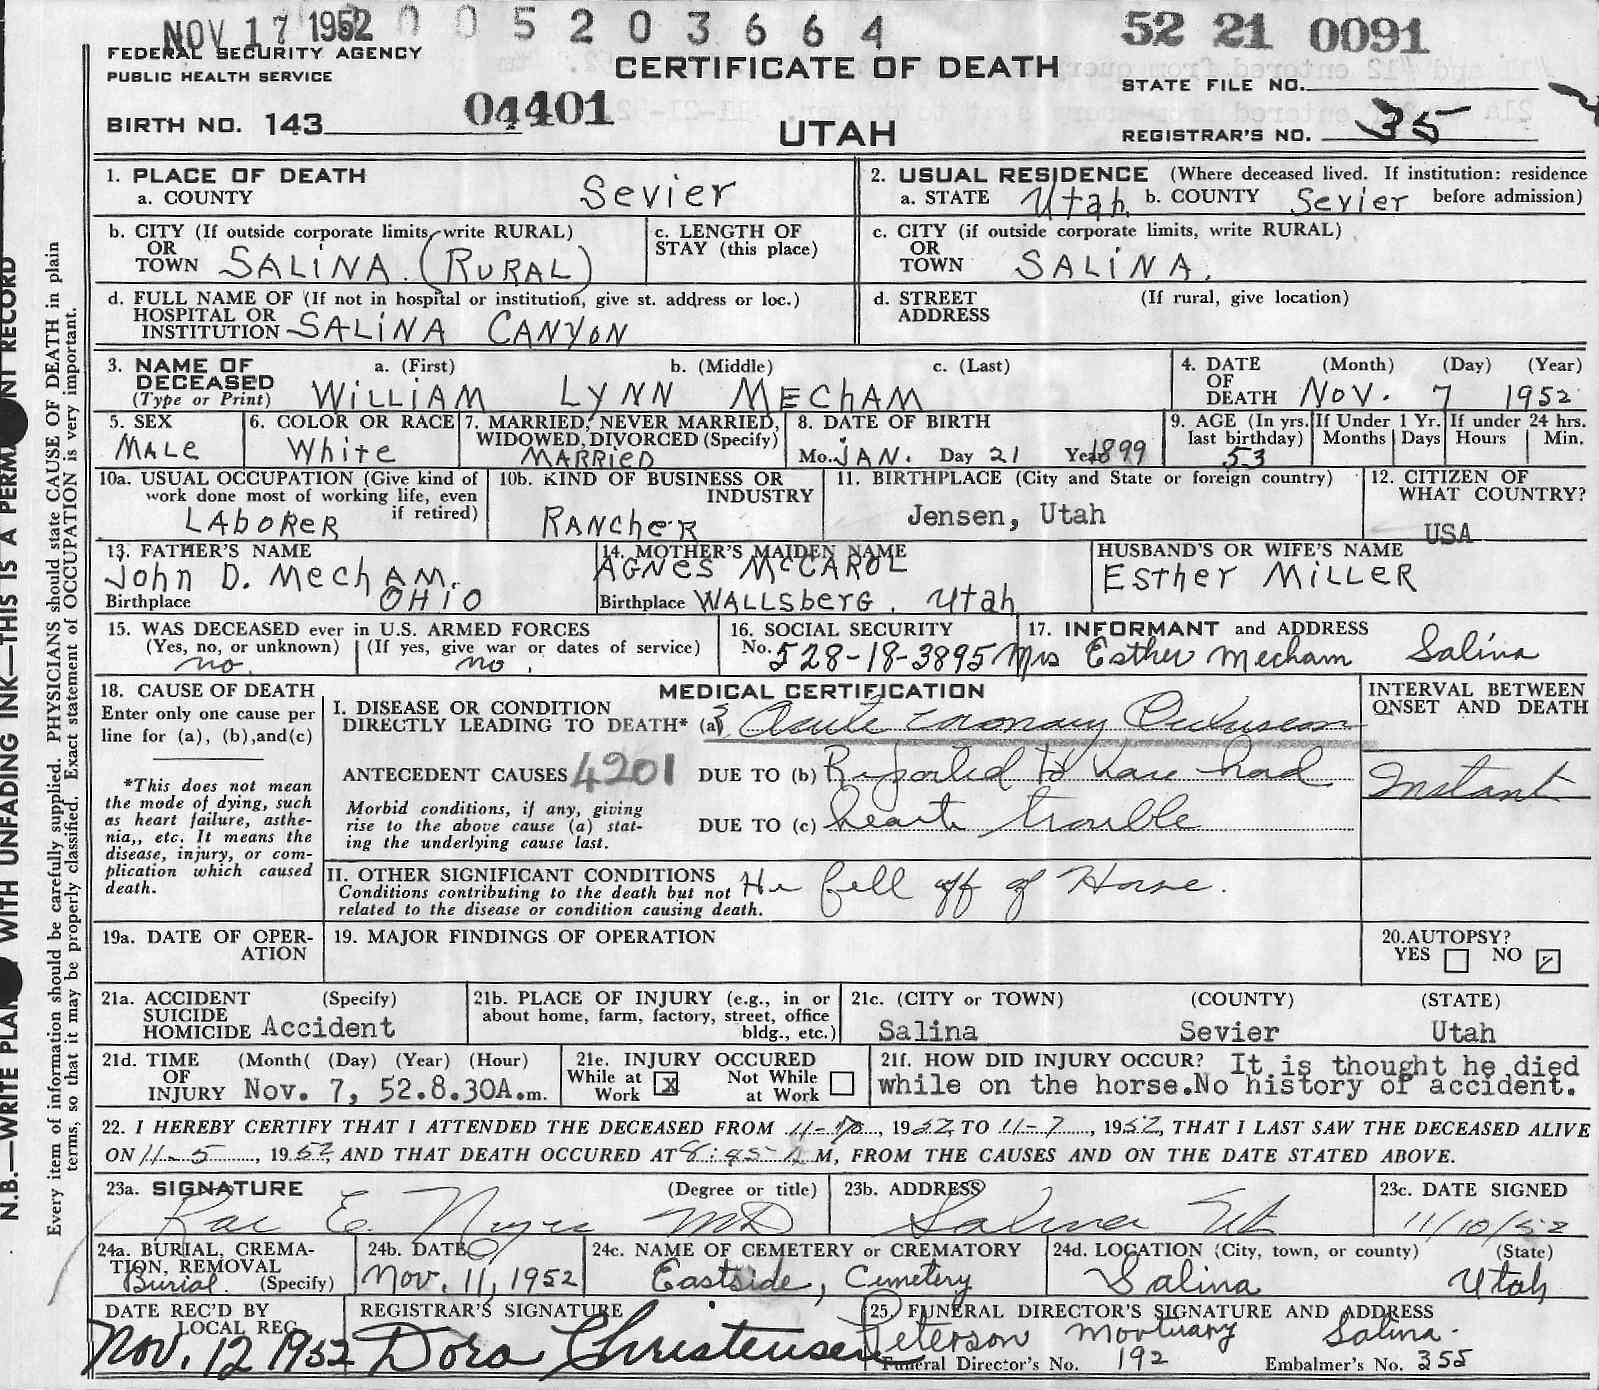 NOV 17 1952 0 0 5 2 0 3 6 6 4 52 21 0091
FEDERAL SECURITY AGENCY
PUBLIC HEALTH SERVICE
CERTIFICATE OF DEATH
STATE FILE NO.
BIRTH NO. 143 04401
UTAH
REGISTRAR'S NO. 35
1. PLACE OF DEATH
a. COUNTY Sevier
2. USUAL RESIDENCE (Where deceased lived. If institution: residence
a. STATE Utah b. COUNTY Sevier before admission)
b. CITY (If outside corporate limits, write RURAL)
OR
TOWN SALINA. (RURAL)
c. LENGTH OF
STAY (this place)
c. CITY (if outside corporate limits, write RURAL)
OR
TOWN SALINA.
d. FULL NAME OF (If not in hospital or institution, give st. address or loc.)
HOSPITAL OR
INSTITUTION SALINA CANYON
d. STREET (If rural, give location)
ADDRESS
3. NAME OF a. (First) b. (Middle) c. (Last)
DECEASED
(Type or Print) WILLIAM LYNN MECHAM
4. DATE (Month) (Day) (Year)
OF
DEATH NOV. 7 1952
5. SEX
MALE
6. COLOR OR RACE
White
7. MARRIED, NEVER MARRIED,
WIDOWED, DIVORCED (Specify)
MARRIED
8. DATE OF BIRTH
Mo. JAN. Day 21 Year 1899
9. AGE (In yrs.
last birthday)
53
If Under 1 Yr.
Months Days
If under 24 hrs.
Hours Min.
10a. USUAL OCCUPATION (Give kind of
work done most of working life, even
if retired)
LABORER
10b. KIND OF BUSINESS OR
INDUSTRY
RANCHER
11. BIRTHPLACE (City and State or foreign country)
Jensen, Utah
12. CITIZEN OF
WHAT COUNTRY?
USA
13. FATHER'S NAME
John D. Mecham.
Birthplace OHIO
14. MOTHER'S MAIDEN NAME
AGNES McCAROL
Birthplace WALLSBERG. Utah
HUSBAND'S OR WIFE'S NAME
Esther MILLER
15. WAS DECEASED ever in U.S. ARMED FORCES
(Yes, no, or unknown) (If yes, give war or dates of service)
no. no.
16. SOCIAL SECURITY
No. 528-18-3895
17. INFORMANT and ADDRESS
Mrs Esther Mecham Salina
18. CAUSE OF DEATH
Enter only one cause per
line for (a), (b), and (c)
*This does not mean
the mode of dying, such
as heart failure, asthe-
nia,, etc. It means the
disease, injury, or com-
plication which caused
death.
MEDICAL CERTIFICATION
I. DISEASE OR CONDITION
DIRECTLY LEADING TO DEATH* (a) Acute Coronary Occlusion
ANTECEDENT CAUSES 4201 DUE TO (b) Reported to have had
Morbid conditions, if any, giving
rise to the above cause (a) stat-
ing the underlying cause last.
DUE TO (c) heart trouble
II. OTHER SIGNIFICANT CONDITIONS He fell off of Horse.
Conditions contributing to the death but not
related to the disease or condition causing death.
INTERVAL BETWEEN
ONSET AND DEATH
Instant
19a. DATE OF OPER-
ATION
19. MAJOR FINDINGS OF OPERATION
20. AUTOPSY?
YES NO
21a. ACCIDENT (Specify)
SUICIDE
HOMICIDE Accident
21b. PLACE OF INJURY (e.g., in or
about home, farm, factory, street, office
bldg., etc.)
21c. (CITY or TOWN) (COUNTY) (STATE)
Salina Sevier Utah
21d. TIME (Month( (Day) (Year) (Hour)
OF
INJURY Nov. 7, 52.8.30A.m.
21e. INJURY OCCURED
While at Work X Not While at Work
21f. HOW DID INJURY OCCUR? It is thought he died
while on the horse.No history of accident.
22. I HEREBY CERTIFY THAT I ATTENDED THE DECEASED FROM 1952, TO 11-7, 1952, THAT I LAST SAW THE DECEASED ALIVE
ON 11-5, 1952, AND THAT DEATH OCCURED AT 8:45 A M, FROM THE CAUSES AND ON THE DATE STATED ABOVE.
23a. SIGNATURE (Degree or title)
Rae E. Noyes MD
23b. ADDRESS
Salina Ut
23c. DATE SIGNED
11/10/52
24a. BURIAL, CREMA-
TION, REMOVAL
Burial. (Specify)
24b. DATE
Nov. 11, 1952
24c. NAME OF CEMETERY or CREMATORY
Eastside, Cemetery
24d. LOCATION (City, town, or county) (State)
Salina Utah
DATE REC'D BY
LOCAL REG.
Nov. 12 1952
REGISTRAR'S SIGNATURE
Dora Christensen
25. FUNERAL DIRECTOR'S SIGNATURE AND ADDRESS
Peterson Mortuary Salina.
Funeral Director's No. 192 Embalmer's No. 355
N.B.—WRITE PLAI WITH UNFADING INK—THIS IS A PERM NT RECORD
Every item of information should be carefully supplied. PHYSICIANS should state CAUSE OF DEATH in plain
terms, so that it may be properly classified. Exact statement of OCCUPATION is very important.